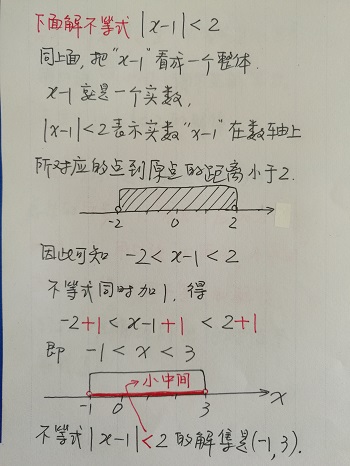 下面解不等式 |x-1|<2
同上面,把"x-1"看成一个整体.
x-1 就是一个实数,
|x-1|<2表示实数"x-1"在数轴上
所对应的点到原点的距离小于2.
-2 0 2
因此可知 -2<x-1<2
不等式同时加1,得
-2+1<x-1+1<2+1
即 -1<x<3
小中间
-1 0 3 x
不等式|x-1|<2的解集是(-1,3).